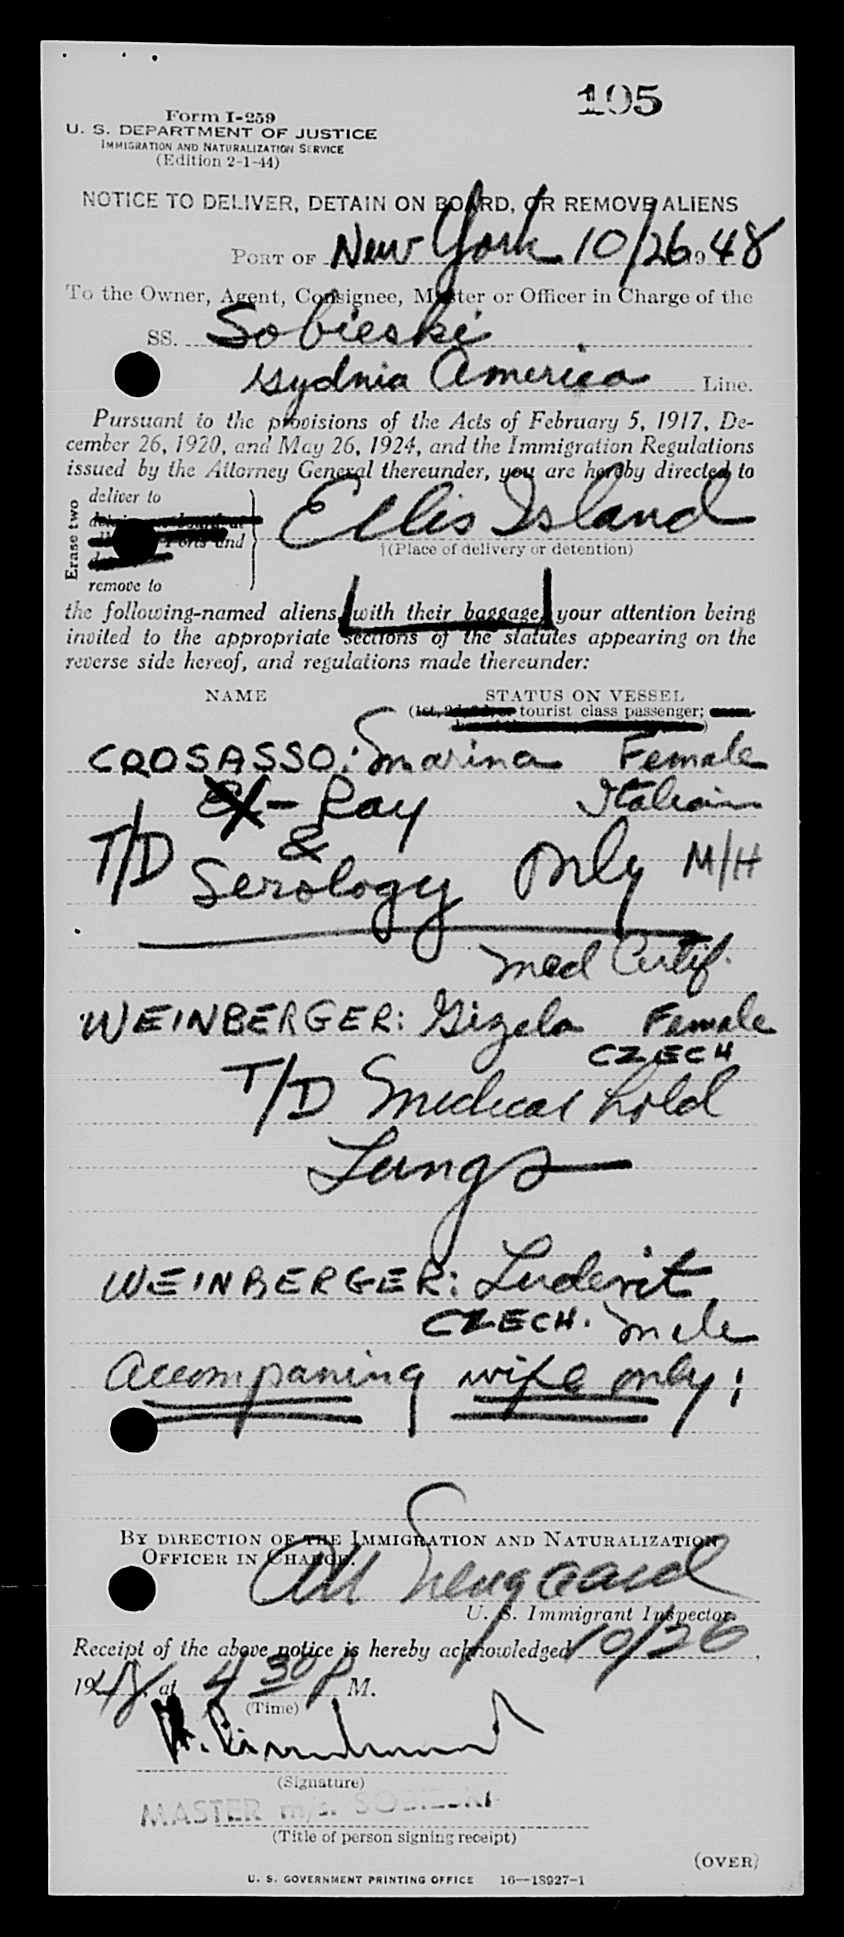 105
Form I-259
U. S. DEPARTMENT OF JUSTICE
IMMIGRATION AND NATURALIZATION SERVICE
(Edition 2-1-44)
NOTICE TO DELIVER, DETAIN ON BOARD, OR REMOVE ALIENS
PORT OF New York 10/26 1948
To the Owner, Agent, Consignee, Master or Officer in Charge of the
SS. Sobieski
Gydnia America Line.
Pursuant to the provisions of the Acts of February 5, 1917, De-
cember 26, 1920, and May 26, 1924, and the Immigration Regulations
issued by the Attorney General thereunder, you are hereby directed to
Erase two
deliver to
Ellis Island
and
(Place of delivery or detention)
remove to
the following-named aliens, with their baggage, your attention being
invited to the appropriate sections of the statutes appearing on the
reverse side hereof, and regulations made thereunder:
NAME STATUS ON VESSEL
tourist class passenger;
CROSASSO: Marina Female
X-Ray Italian
&
T/D Serology only M/H
Med Certif.
WEINBERGER: Gizela Female
CZECH
T/D Medical hold
Lungs
WEINBERGER: Ludevit
CZECH. Male
Accompaning wife only;
BY DIRECTION OF THE IMMIGRATION AND NATURALIZATION
OFFICER IN CHARGE:
U. S. Immigrant Inspector.
Receipt of the above notice is hereby acknowledged 10/26,
1948, at 4 30 P M.
(Time)
(Signature)
MASTER m/s. SOBIESKI
(Title of person signing receipt)
(OVER)
U. S. GOVERNMENT PRINTING OFFICE 16—18927-1